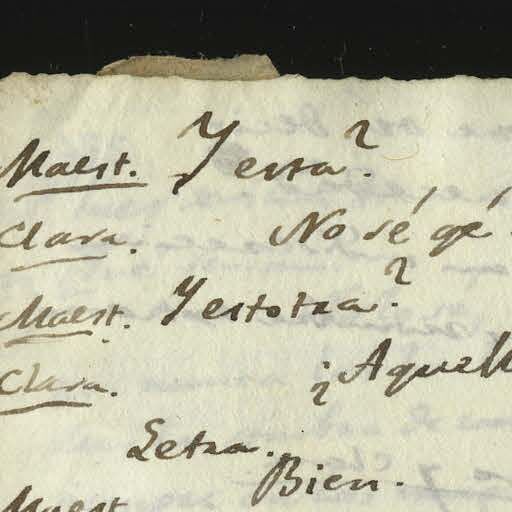 Maest. Yesta?
Clara. No sé qé
Maest. Yestotra?
Clara. ¿Aquell
Letra.
Bien.
Maest.